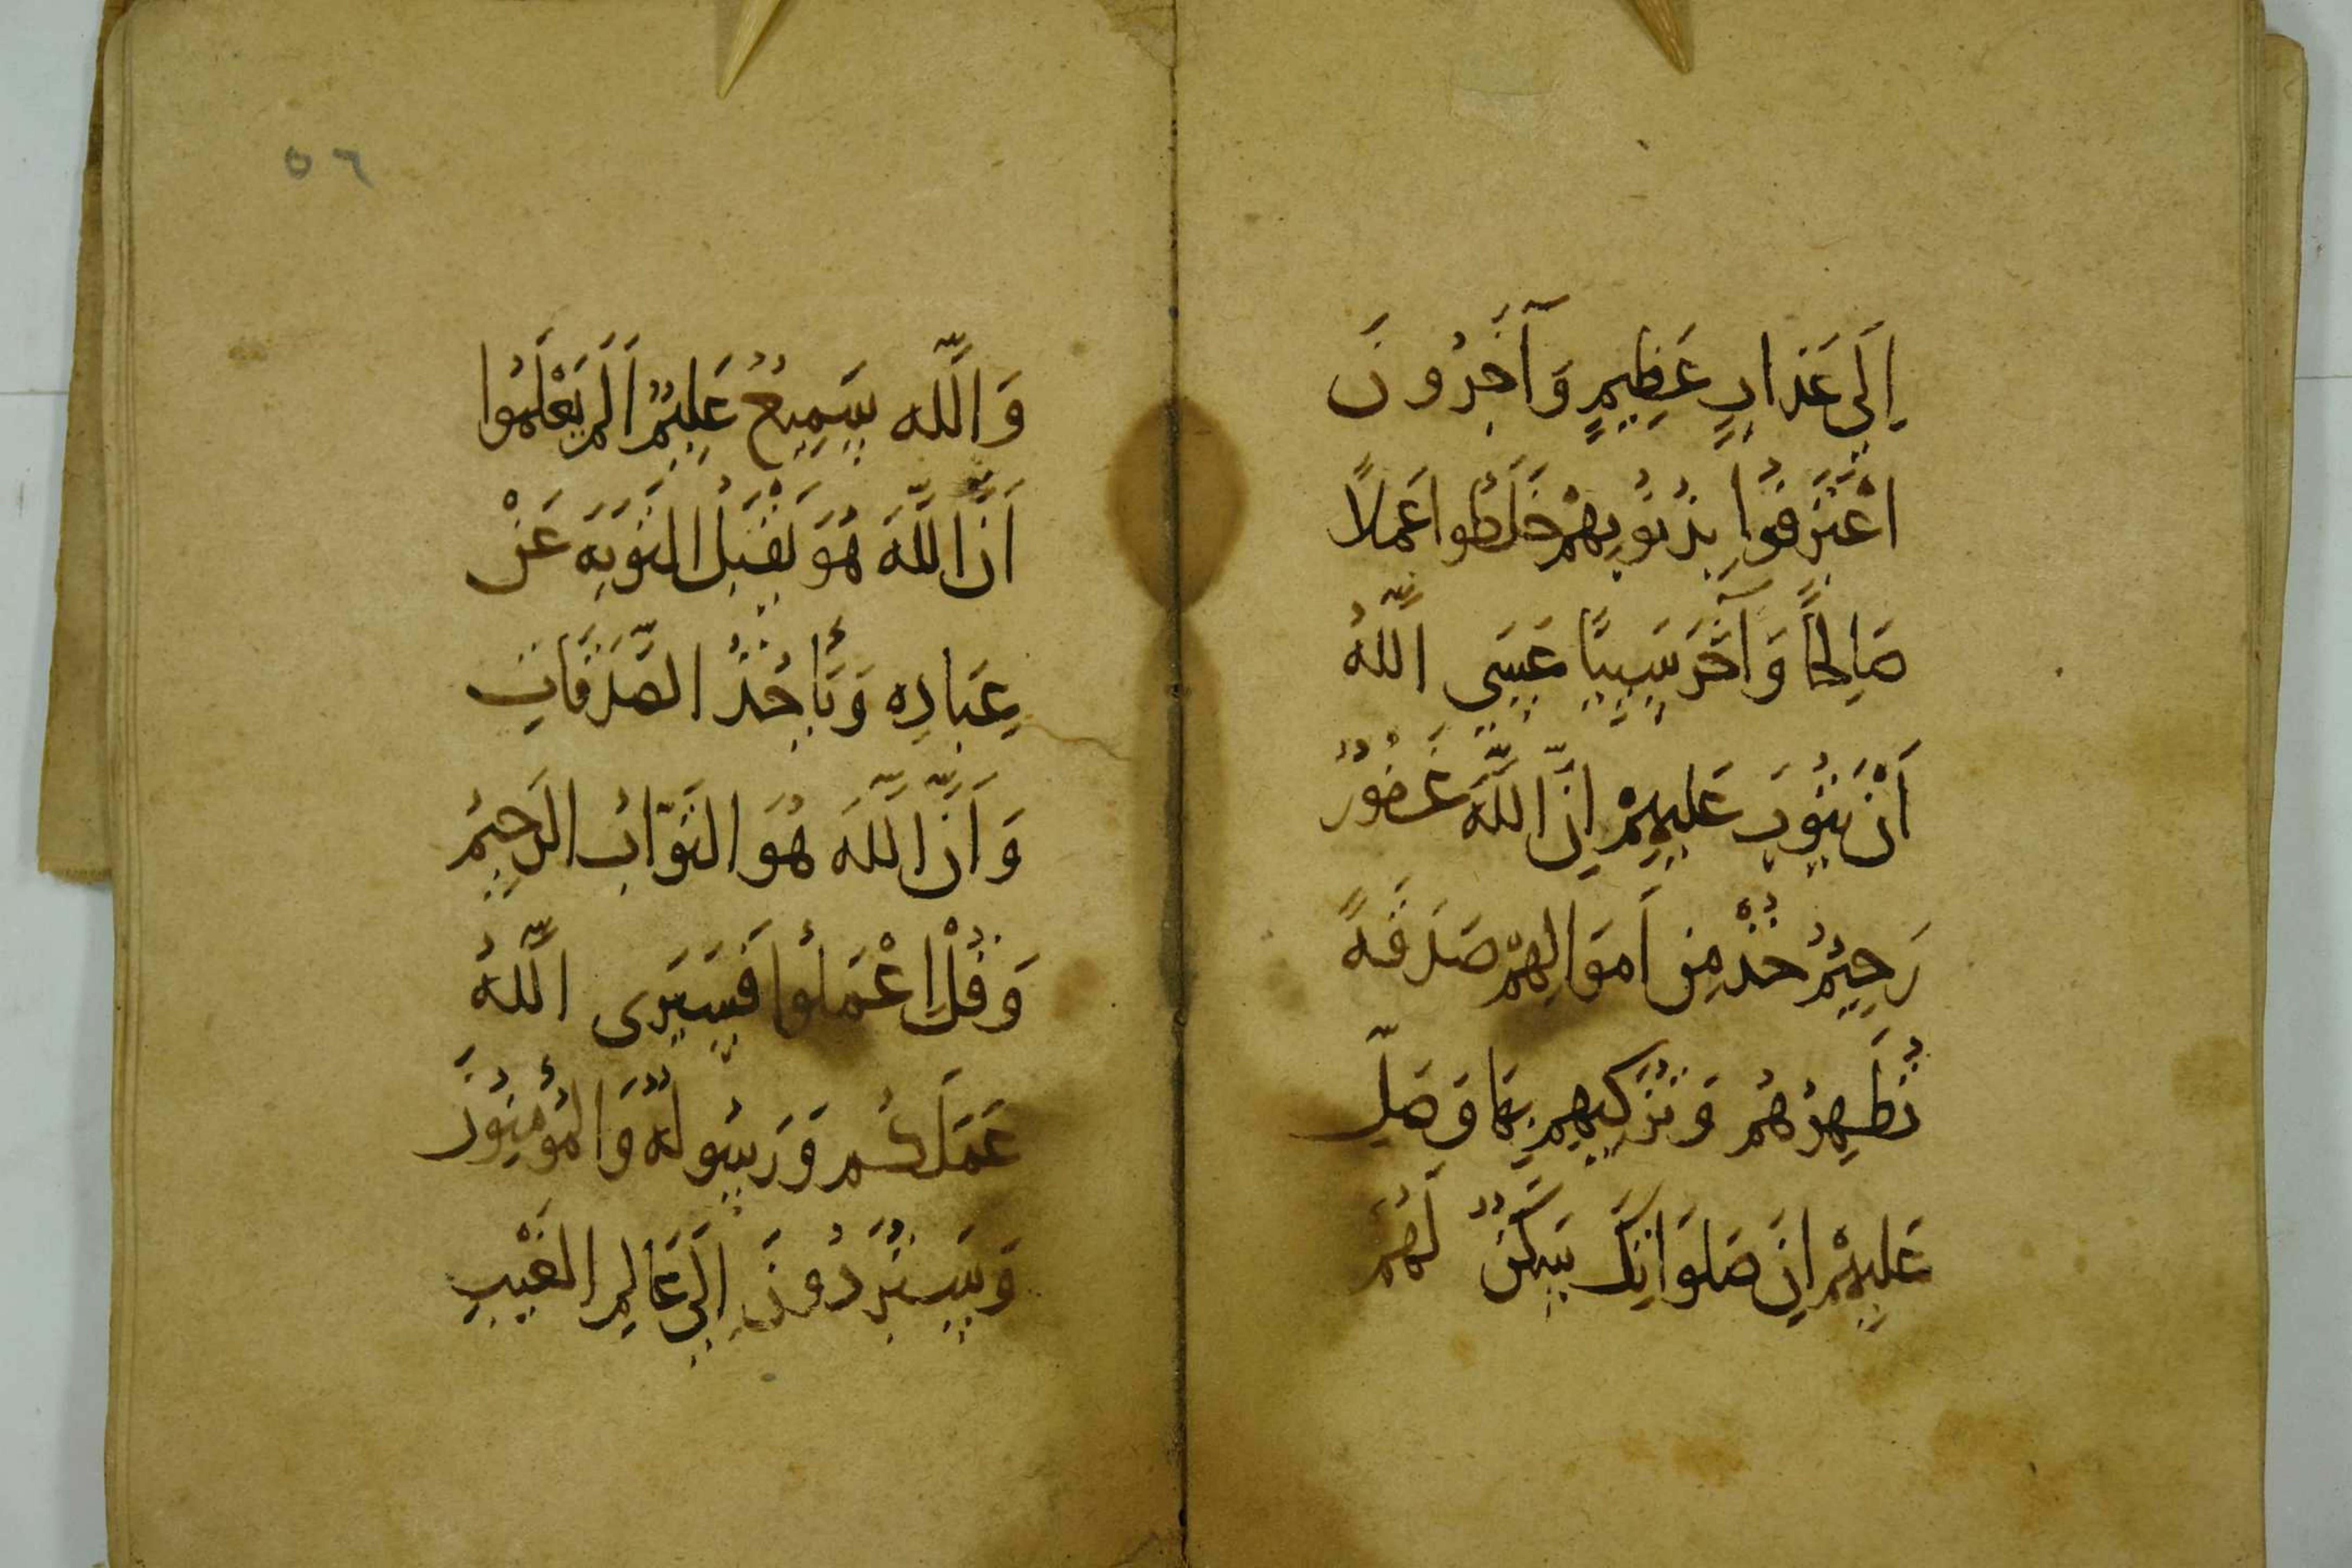 اِلَى عَذَابٍ عَظِيمٍ وَآخَرُونَ
اعْتَرَفُوا بِذُنُوبِهِمْ خَلَطُوا عَمَلًا
صَالِحًا وَآخَرَ سَيِّئًا عَسَى اللَّهُ
أَنْ يَتُوبَ عَلَيْهِمْ اِنَّ اللَّهَ غَفُورٌ
رَحِيمٌ خُذْ مِنْ اَمْوَالِهِمْ صَدَقَةً
تُطَهِّرُهُمْ وَتُزَكِّيهِمْ بِهَا وَصَلِّ
عَلَيْهِمْ اِنَّ صَلَوَاتِكَ سَكَنٌ لَهُمْ
٥٦
وَاللَّهُ سَمِيعٌ عَلِيمٌ اَلَمْ يَعْلَمُوا
اَنَّ اللَّهَ هُوَ يَقْبَلُ التَّوْبَةَ عَنْ
عِبَادِهِ وَيَأْخُذُ الصَّدَقَاتِ
وَاَنَّ اللَّهَ هُوَ التَّوَّابُ الرَّحِيمُ
وَقُلِ اعْمَلُوا فَسَيَرَى اللَّهُ
عَمَلَكُمْ وَرَسُولُهُ وَالْمُؤْمِنُونَ
وَسَتُرَدُّونَ اِلَى عَالِمِ الْغَيْبِ